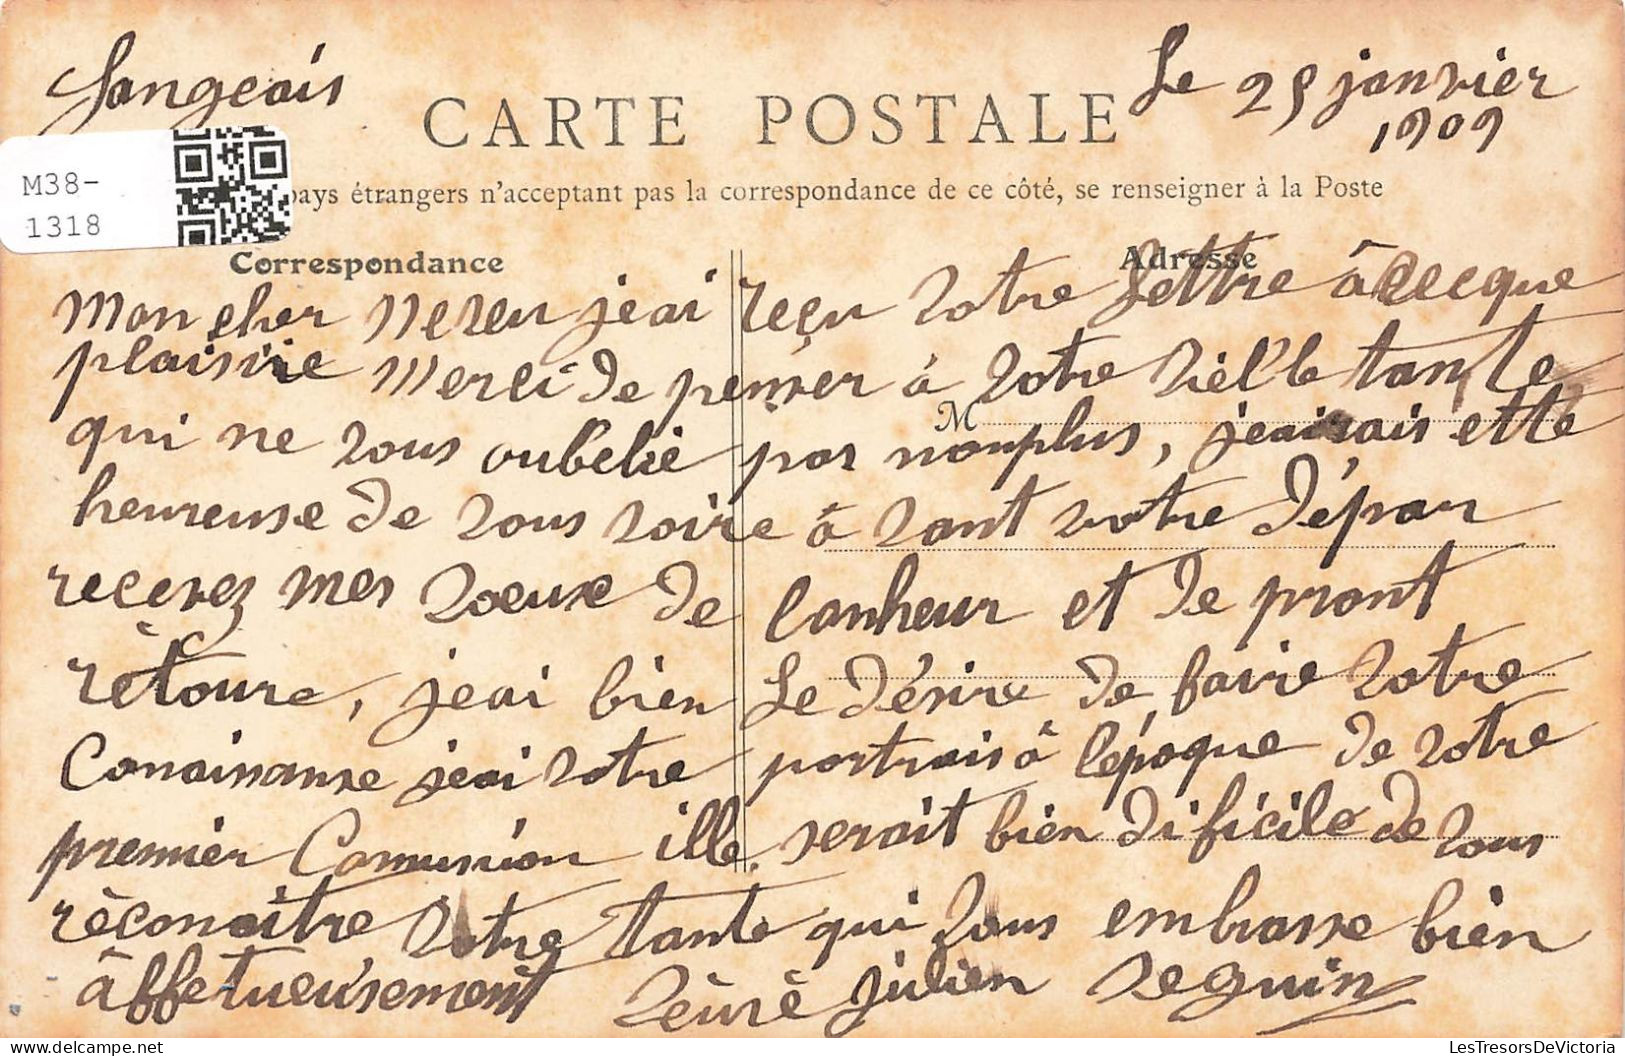 Langeais Le 25 janvier
1909
CARTE POSTALE
M38-
1318
pays étrangers n'acceptant pas la correspondance de ce côté, se renseigner à la Poste
Correspondance Adresse
Mon cher Neveu jeai reçu votre lettre âvecque
plaisire Merci de penser à votre vielle tante
M
qui ne vous oubelie pas nonplus, jeaisais etté
heureuse de vous voire â vant votre dépar
recevez mes voeuxe de bonheur et de pront
rètoure, jeai bien Le désire de faire votre
Conaisanse jeai votre portrais â l'époque de votre
premier Comunion ille serait bien dificile de vous
rèconaitre votre tante qui vous embrasse bien
âffetueusement vèuvè julien Seguin
LesTresorsDeVictoria